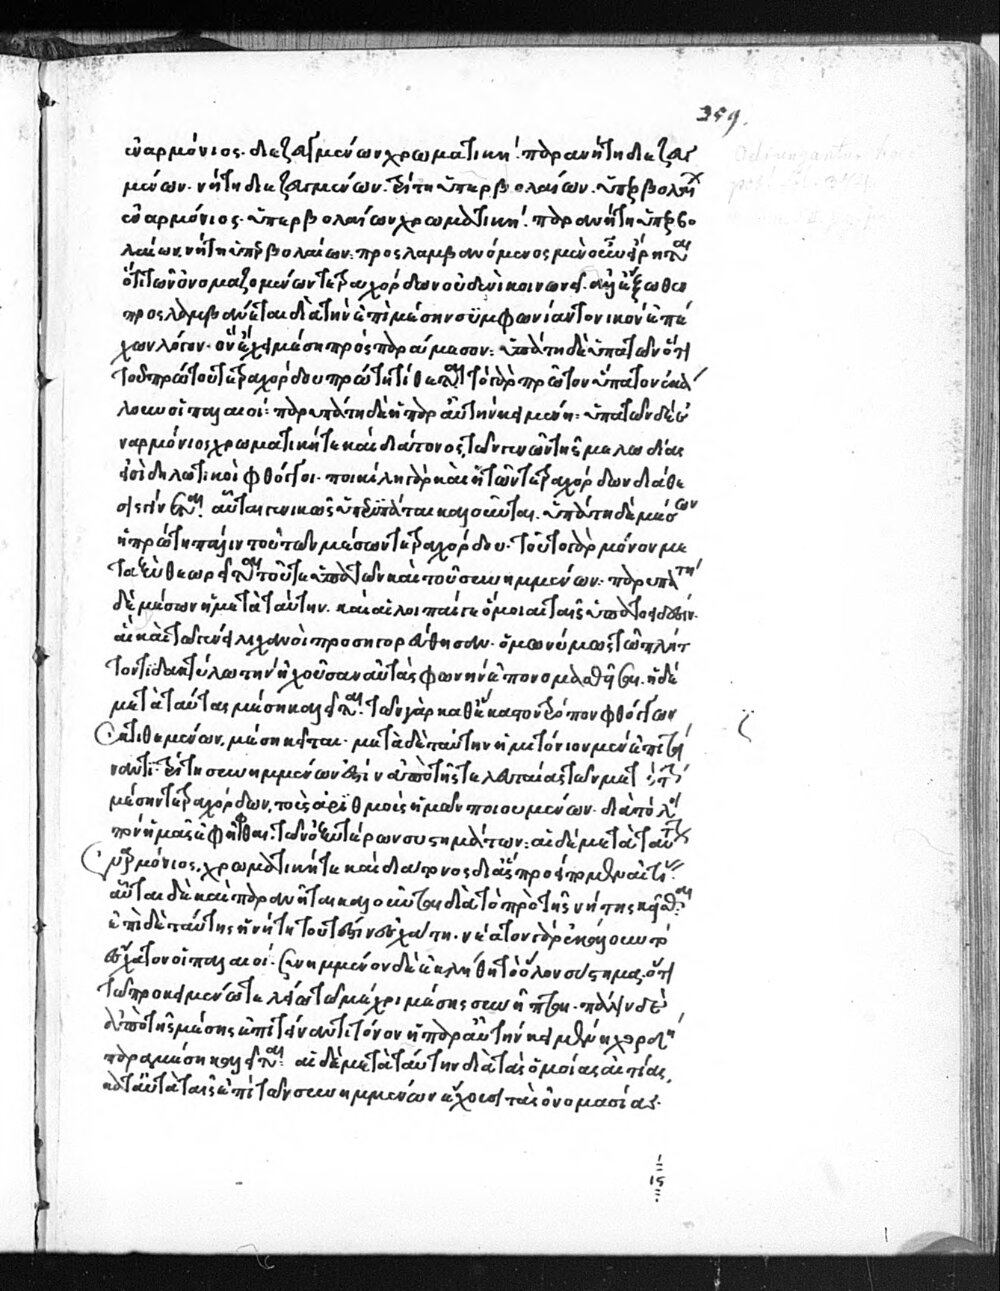 359.
ἐναρμόνιος· διεζευγμένων χρωματική· παρανήτη διεζευγ
μένων· νήτη διεζευγμένων· τρίτη ὑπερβολαίων· ὑπερβολαίων
ἐναρμόνιος· ὑπερβολαίων χρωματική· παρανήτη ὑπερβο
λαίων· νήτη ὑπερβολαίων: προσλαμβανόμενος μὲν οὖν εἴρηται
ὅτι τῶν ὀνομαζομένων τετραχόρδων οὐδενὶ κοινωνεῖ· ἀλλ' ἔξωθεν
προσλαμβάνεται διὰ τὴν ἐπὶ μέσην συμφωνίαν τονικὸν ἐπέ
χων λόγον· ὃν ἔχει μέση πρὸς παράμεσον: ὑπάτη δὲ ὑπατῶν ὅτι
τοῦ πρώτου τετραχόρδου πρώτη τίθεται· τὸ γὰρ πρῶτον ὕπατον ἐκά
λουν οἱ παλαιοί: παρυπάτη δὲ ἡ παρ' αὐτὴν κειμένη: ὑπατῶν δὲ ἐ
ναρμόνιος χρωματική τε καὶ διάτονος, τῶν γενῶν τῆς μελωδίας
εἰσὶ δηλωτικοὶ φθόγγοι· ποικίλη γὰρ καὶ ἡ τῶν τετραχόρδων διάθε
σις γίνεται· αὗται γενικῶς ὑπερυπάται καλοῦνται· ὑπάτη δὲ μέσων
ἡ πρώτη πάλιν τοῦ τῶν μέσων τετραχόρδου· τοῦτο γὰρ μόνον με
ταξὺ θεωρεῖται τοῦ τε ὑπατῶν καὶ τοῦ συνημμένων: παρυπάτη
δὲ μέσων ἡ μετὰ ταύτην· καὶ αἱ λοιπαί γε ὅμοιαι ταῖς
αἳ καὶ τῶ γένει λιχανοὶ προσηγορεύθησαν· ὁμωνύμως τῶ πλήτ
τοντι δακτύλω τὴν ἠχοῦσαν αὐτὰς φωνὴν ἐπονομασθεῖσαι· ἡ δὲ
μετὰ ταύτας μέση καλεῖται· τῶν γὰρ καθ' ἕκαστον τρόπον φθόγγων
ἐκτιθεμένων, μέση κεῖται· μετὰ δὲ ταύτην ἡμιτόνιον μὲν ἐπιτεί
ναντι· τρίτη συνημμένων ἐστὶν ἀπὸ τῆς τελευταίας τῶν μετὰ τὴν
μέσην τετραχόρδων, τοὺς ἀριθμοὺς ἡμῶν ποιουμένων·
πρὶν ἡμᾶς ἐφῆφθαι τῶν ὀξυτέρων συστημάτων: αἱ δὲ μετὰ ταύτης
ἐναρμόνιος, χρωματική τε καὶ διάτονος διὰ τὰς προειρημένας αἰτίας·
αὗται δὲ καὶ παρανῆται καλοῦνται διὰ τὸ πρὸ τῆς νήτης κεῖσθαι·
ἐπὶ δὲ ταύτης ἡ νήτη τουτέστιν ἐσχάτη· νέατον γὰρ ἐκάλουν τὸ
ἔσχατον οἱ παλαιοί· Συνημμένον δὲ ἐκλήθη τὸ ὅλον σύστημα, ὅτι
τῶ προκειμένω τελείω τῶ μέχρι μέσης συνῆπται· πάλιν δὲ
ἀπὸ τῆς μέσης ἐπιτείναντι τόνον ἡ παρ' αὐτὴν κειμένη χορδὴ
παραμέση καλεῖται: αἱ δὲ μετὰ ταύτην διὰ τὰς ὁμοίας αἰτίας,
κατὰ ταὐτὰ ταῖς ἐπὶ τῶν συνημμένων ἔχουσι τὰς ὀνομασίας·
15